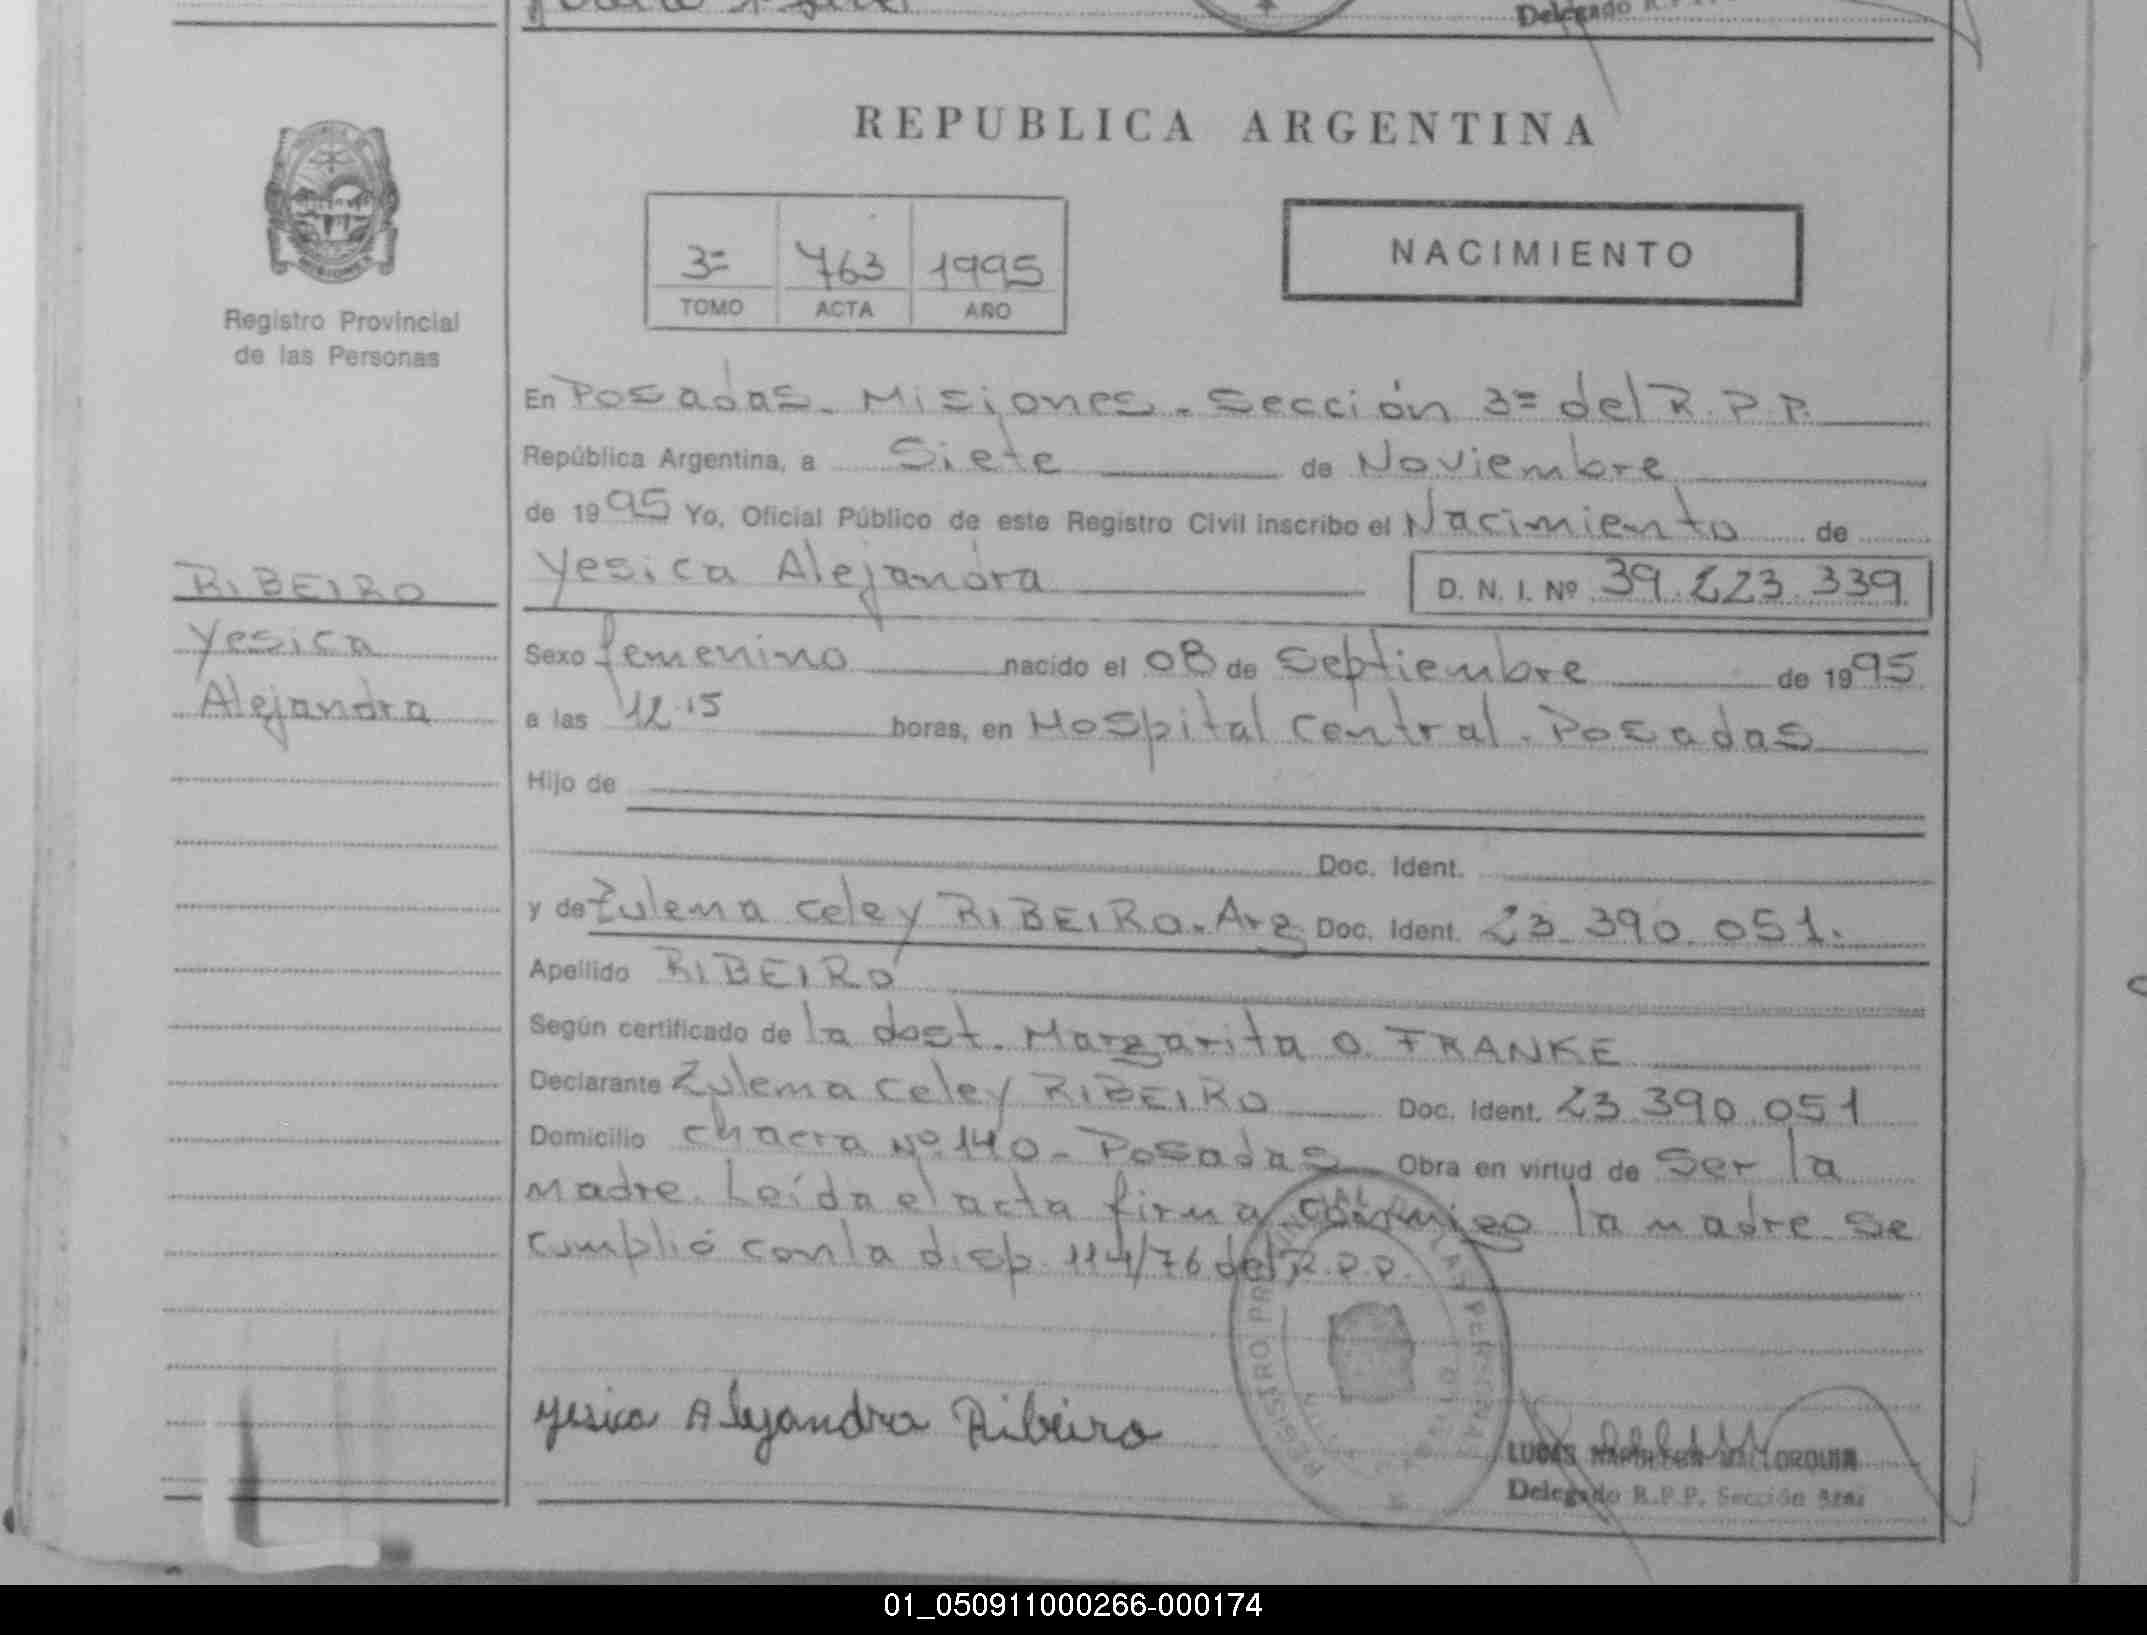 Delegado R.P.P.
REPUBLICA ARGENTINA
3ª 763 1995
TOMO ACTA AÑO
NACIMIENTO
Registro Provincial
de las Personas
RIBEIRO
Yesica
Alejandra
En Posadas - Misiones - Sección 3ª del R.P.P.
República Argentina, a Siete de Noviembre
de 1995 Yo, Oficial Público de este Registro Civil inscribo el Nacimiento de
Yesica Alejandra D. N. I. Nº 39.223.339
Sexo femenino nacido el 08 de Septiembre de 1995
a las 12.15 horas, en Hospital Central. Posadas
Hijo de
Doc. Ident.
y de Zulema Celey RIBEIRO. Arg Doc. Ident. 23.390.051.
Apellido RIBEIRO
Según certificado de la dost. Margarita O. FRANKE
Declarante Zulema Celey RIBEIRO Doc. Ident. 23.390.051
Domicilio chacra Nº 140 - Posadas Obra en virtud de Ser la
madre. Leída el acta firma conmigo la madre. Se
cumplió con la disp. 114/76 del R.P.P.
Yesica Alejandra Ribeiro
REGISTRO PROVINCIAL DE LAS PERSONAS
Delegado R.P.P. Sección 3ra.
01_050911000266-000174